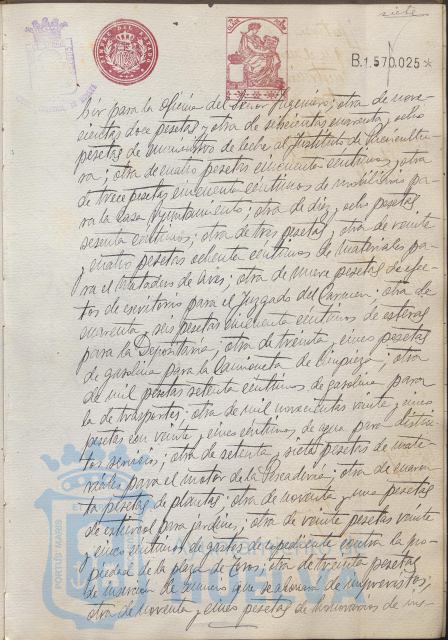 siete
B.1.570.025*
bir para la oficina del Señor Ingeniero; otra de nove-
cientas doce pesetas y otra de seiscientas cuarenta y ocho
pesetas de suministro de leche al Instituto de Puericultu-
ra; otra de cuatro pesetas cincuenta centimos y otra
de trece pesetas cincuenta centimos de mobiliario pa-
ra la Casa Ayuntamiento; otra de diez y ocho pesetas
sesenta centimos; otra de tres pesetas y otra de veinte
y cuatro pesetas ochenta centimos de materiales pa-
ra el Matadero de Aves; otra de nueve pesetas de efec-
tos de escritorio para el Juzgado del Carmen; otra de
cuarenta y seis pesetas cincuenta centimos de esteras
para la Depositaria, otra de treinta y cinco pesetas
de gasolina para la camioneta de limpieza; otra
de mil pesetas setenta centimos de gasolina para
la de trasportes; otra de mil veinte y cinco
pesetas con veinte y cinco centimos de agua para distin-
tos servicios; otra de setenta y siete pesetas de mate-
riales para el motor de la Pescaderia; otra de cuaren-
ta pesetas de plantas; otra de noventa y una pesetas
de estiercol para jardines; otra de veinte pesetas veinte
y cinco centimos de gastos de expediente contra la pro-
piedad de la plaza de toros; otra de treinta pesetas
de insercion de anuncio que se abonara de imprevistos;
otra de noventa y cinco pesetas de honorarios de ins-
PORTUS MARIS